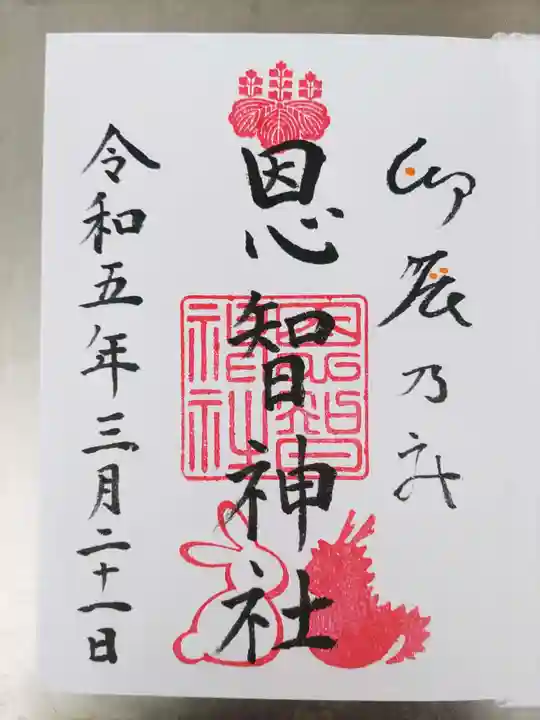 卯辰乃社
恩智神社
恩智神社
令和五年三月二十一日